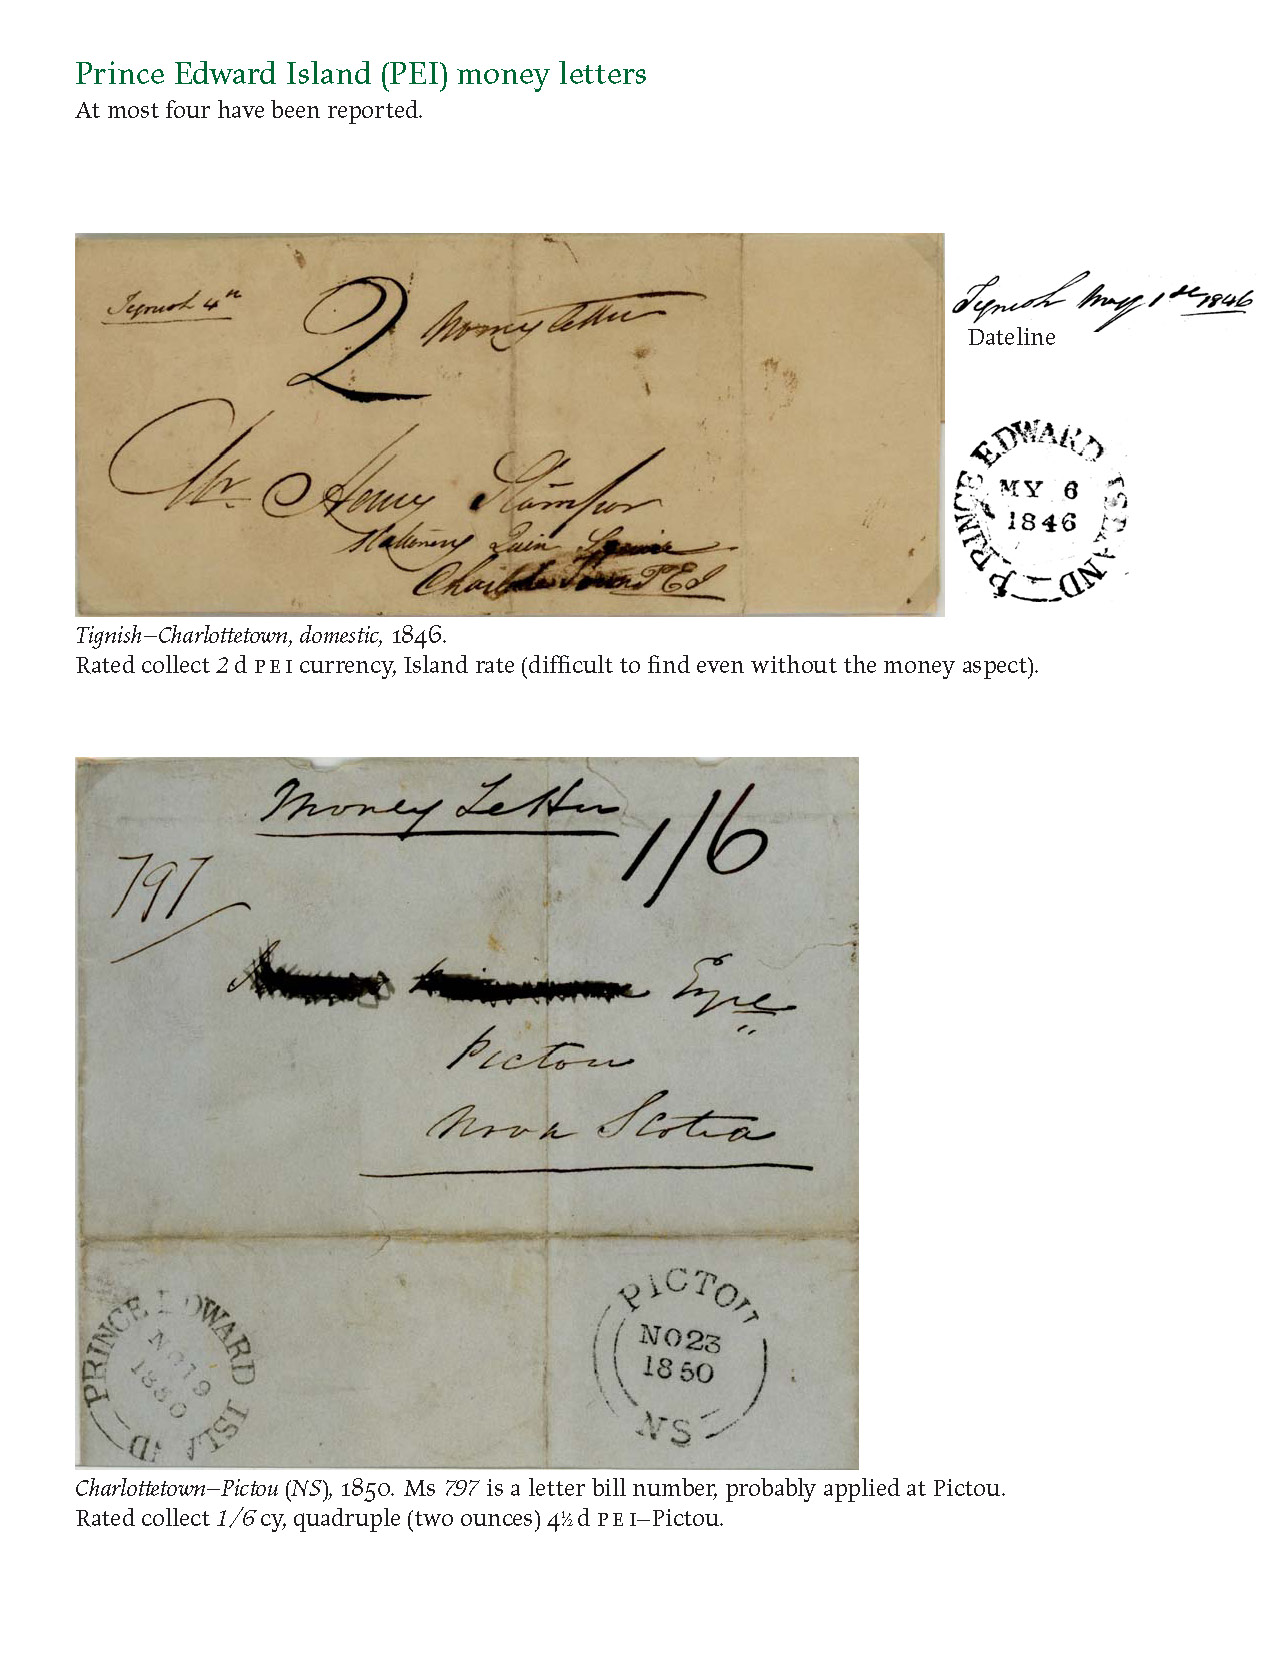 Prince Edward Island (PEI) money letters
At most four have been reported.
Tignish 4th
2 Money Letter
Mr. Henry Stamper
Queen Square
Charlotte Town PEI
Tignish May 1st 1846
Dateline
PRINCE EDWARD ISLAND
MY 6
1846
Tignish–Charlottetown, domestic, 1846.
Rated collect 2 d PEI currency, Island rate (difficult to find even without the money aspect).
Money Letter
1/6
797
Esqre
Pictou
Nova Scotia
PRINCE EDWARD ISLAND
NO 19
1850
PICTOU
NO 23
1850
NS
Charlottetown–Pictou (NS), 1850. Ms 797 is a letter bill number, probably applied at Pictou.
Rated collect 1/6 cy, quadruple (two ounces) 4½ d PEI–Pictou.